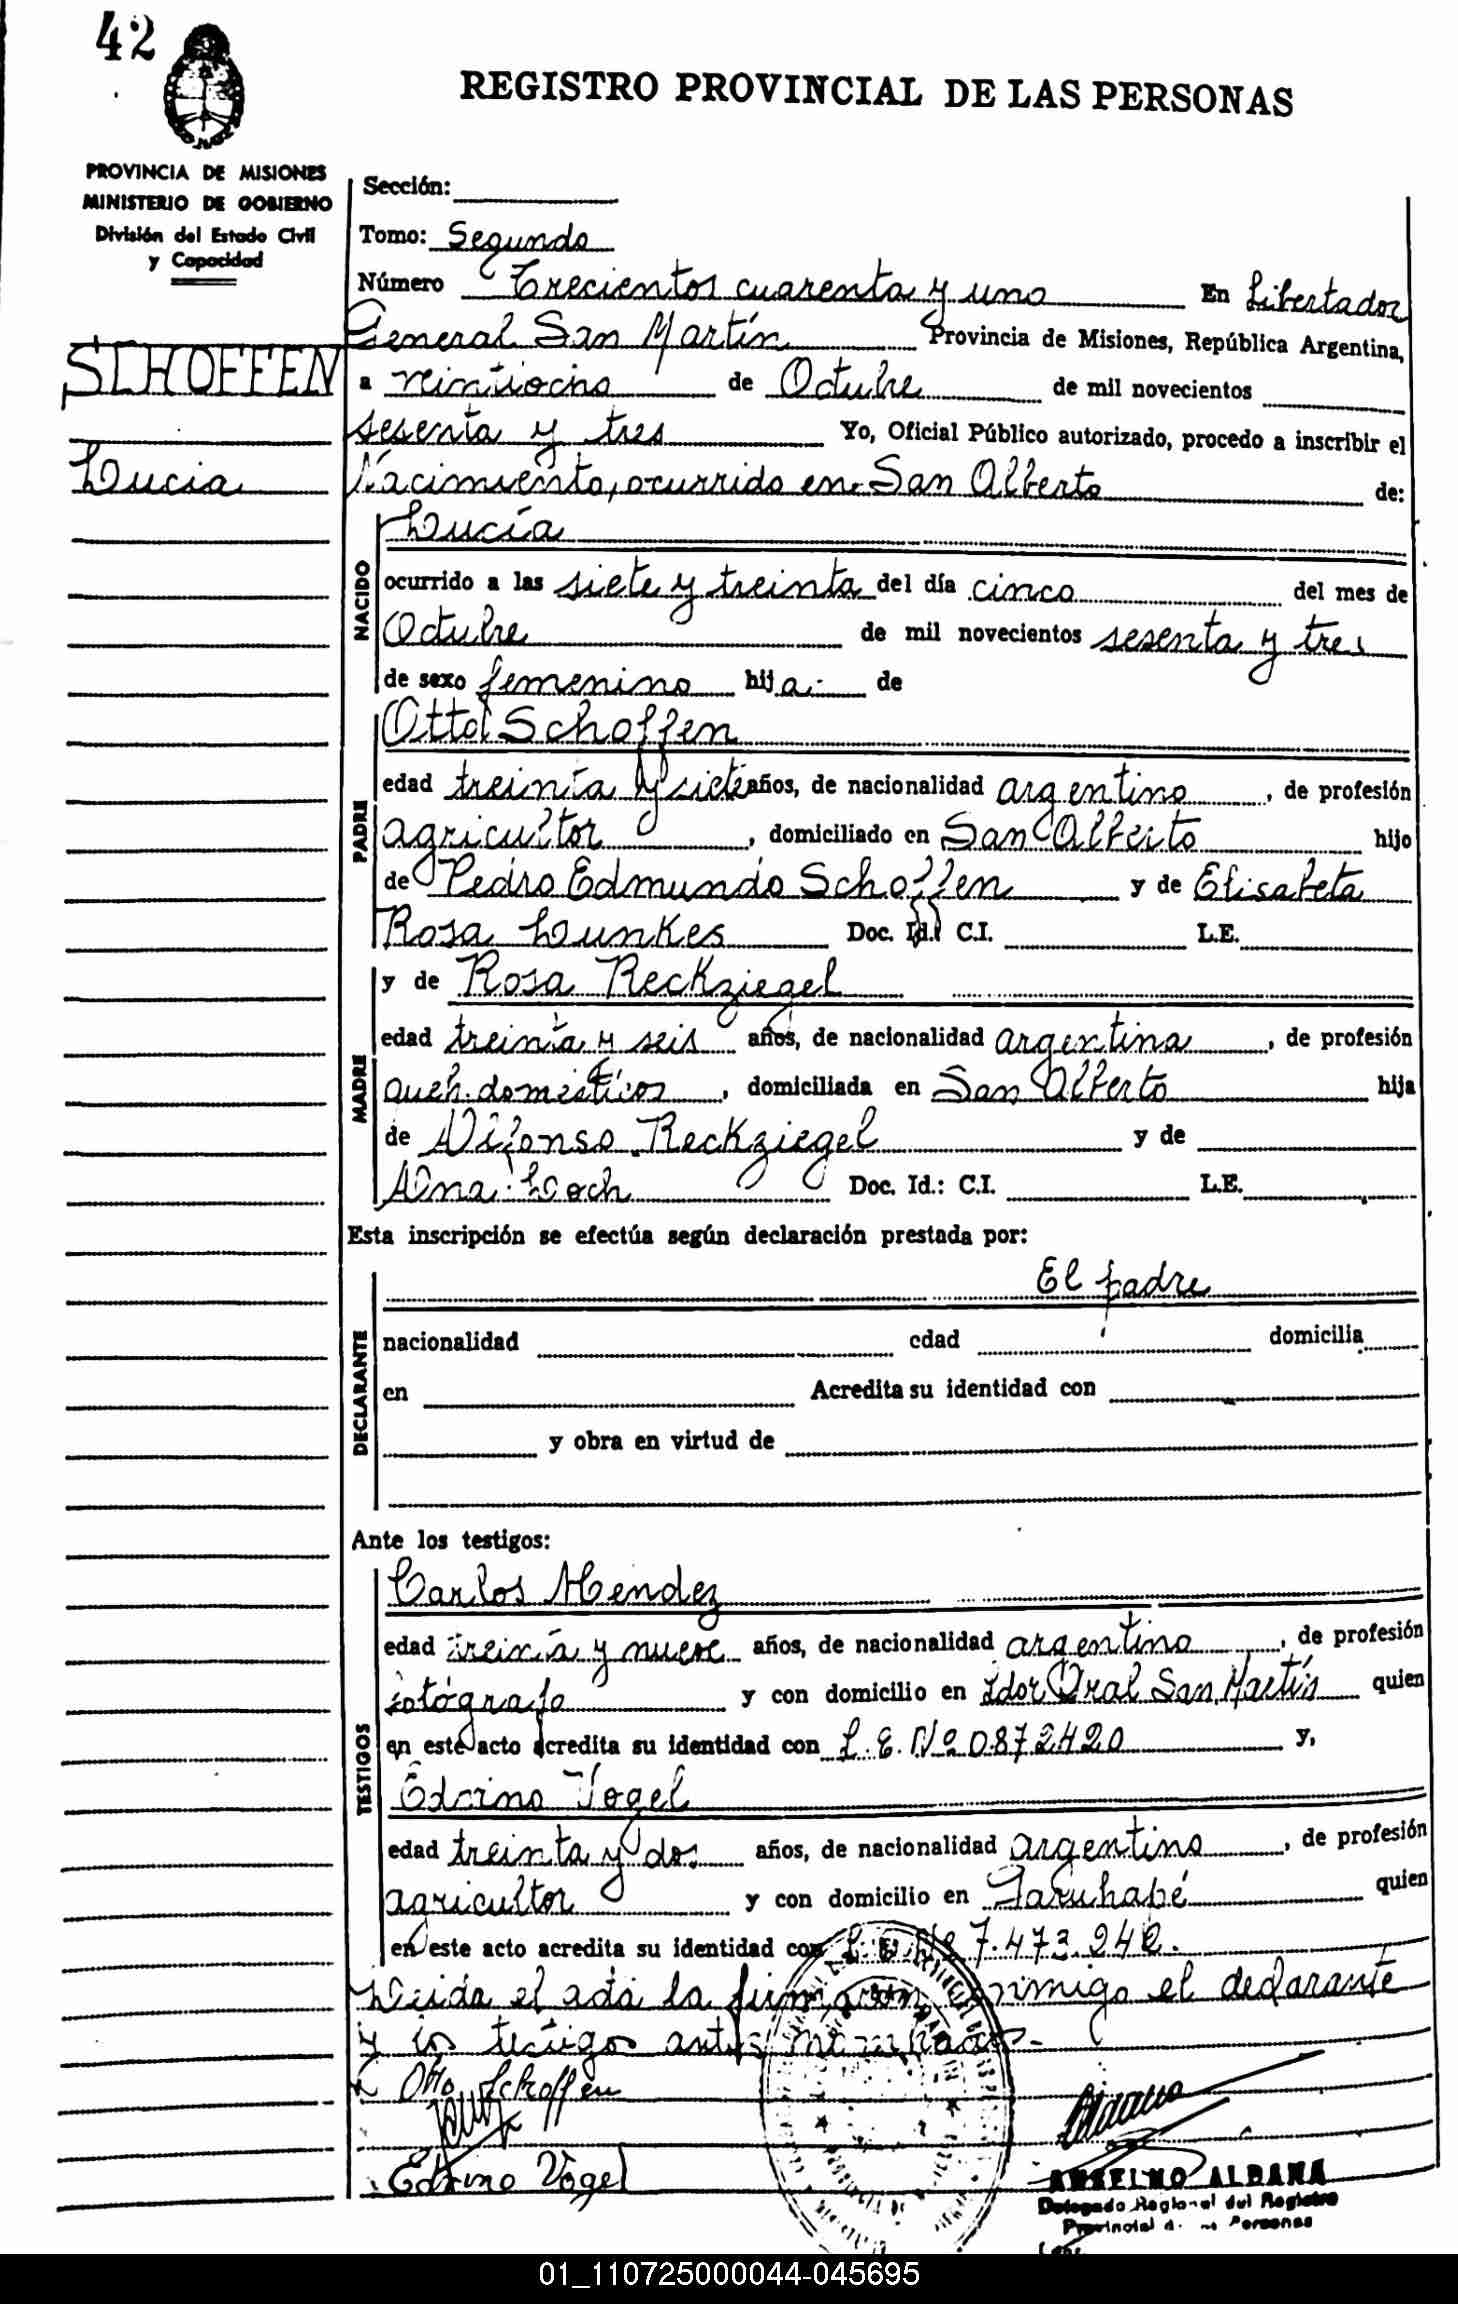 42
REGISTRO PROVINCIAL DE LAS PERSONAS
PROVINCIA DE MISIONES
MINISTERIO DE GOBIERNO
División del Estado Civil
y Capacidad
SCHOFFEN
Lucia
Sección:
Tomo: Segundo
Número Trecientos cuarenta y uno En Libertador
General San Martín Provincia de Misiones, República Argentina,
a veintiocho de Octubre de mil novecientos
sesenta y tres Yo, Oficial Público autorizado, procedo a inscribir el
Nacimiento, ocurrido en San Alberto de:
NACIDO
Lucía
ocurrido a las siete y treinta del día cinco del mes de
Octubre de mil novecientos sesenta y tres
de sexo femenino hija de
PADRE
Otto Schoffen
edad treinta y siete años, de nacionalidad argentino, de profesión
agricultor, domiciliado en San Alberto hijo
de Pedro Edmundo Schoffen y de Elisabeta
Rosa Lunkes Doc. Id.: C.I. L.E.
MADRE
y de Rosa Reckziegel
edad treinta y seis años, de nacionalidad argentina, de profesión
queh. domésticos, domiciliada en San Alberto hija
de Alfonso Reckziegel y de
Alna Loch Doc. Id.: C.I. L.E.
Esta inscripción se efectúa según declaración prestada por:
DECLARANTE
El padre
nacionalidad edad domicilia
en Acredita su identidad con
y obra en virtud de
Ante los testigos:
TESTIGOS
Carlos Mendez
edad treinta y nueve años, de nacionalidad argentino, de profesión
fotógrafo y con domicilio en Ldor Gral San Martín quien
en este acto acredita su identidad con L.E. Nº 0872420 y,
Edvino Vogel
edad treinta y dos años, de nacionalidad argentino, de profesión
agricultor y con domicilio en Garuhapé quien
en este acto acredita su identidad con L.E. Nº 7.473.242.
Leída el acta la firmaron conmigo el declarante
y los testigos antes mencionados-
Otto Schoffen
Edvino Vogel
ANSELMO ALDANA
Delegado Regional del Registro
Provincial de las Personas
01_110725000044-045695